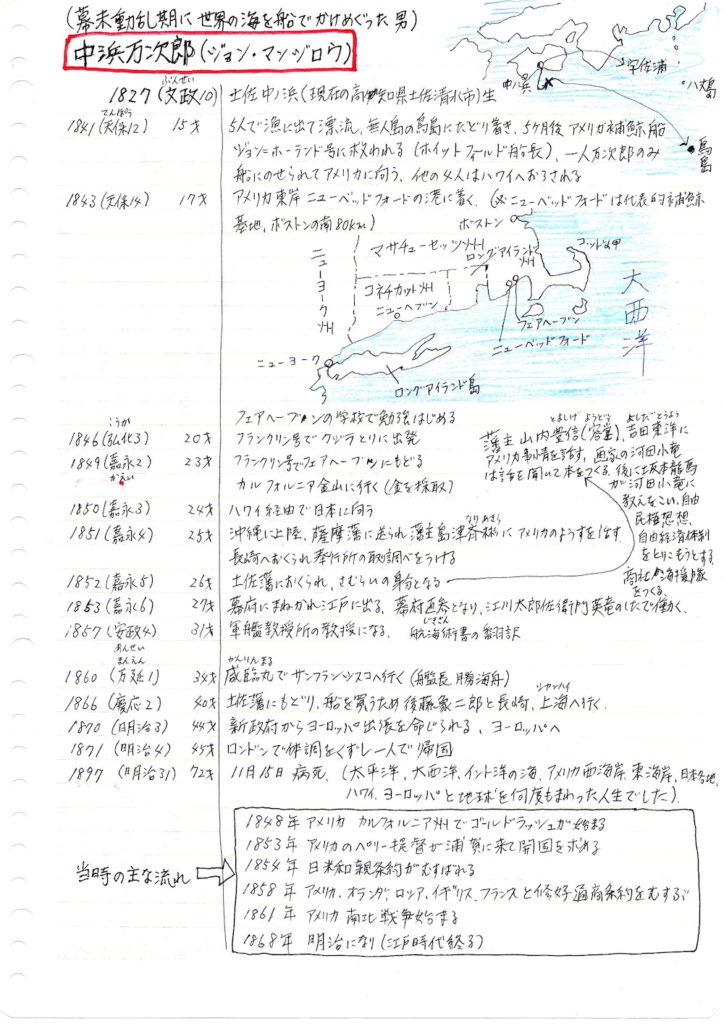 (幕末動乱期に世界の海を船でかけめぐった男)
中浜万次郎(ジョン・マンジロウ)
中ノ浜
宇佐浦
八丈島
鳥島
ぶんせい
1827(文政10) 土佐中ノ浜(現在の高知県土佐清水市)生
てんぽう
1841(天保12) 15才 5人で漁に出て漂流、無人島の鳥島にたどり着き、5ヶ月後アメリカ補鯨船
ジョン=ホーランド号に救われる(ホイットフィールド船長)、一人万次郎のみ
船にのせられてアメリカに向う、他の4人はハワイへおろされる
1843(天保14) 17才 アメリカ東岸ニューベッドフォードの港に着く、(※ニューベッドフォードは代表的補鯨
基地、ボストンの南80km)
ボストン
マサチューセッツ州
ロングアイランド州
コッド岬
ニューヨーク州
コネチカット州
ニューヘブン
フェアヘーブン
ニューベッドフォード
ニューヨーク
ロングアイランド島
大西洋
フェアヘーブンの学校で勉強はじめる
こうか
1846(弘化3) 20才 フランクリン号でクジラとりに出発
1849(嘉永2) 23才 フランクリン号でフェアヘーブンにもどる
かえい
カルフォルニア金山に行く(金を採取)
1850(嘉永3) 24才 ハワイ経由で日本に向う
なりあきら
1851(嘉永4) 25才 沖縄に上陸、薩摩藩に送られ藩主島津斉彬にアメリカのようすを話す
長崎へおくられ奉行所の取調べをうける
1852(嘉永5) 26才 土佐藩におくられ、さむらいの身分となる
1853(嘉永6) 27才 幕府にまねかれ江戸に出る、幕府直参となり、江川太郎佐衛門英竜のしたで働く、
じきさん
1857(安政4) 31才 軍艦教授所の教授になる、航海術書の翻訳
あんせい
とよしげ ようどう よしだとうよう
藩主山内豊信(容堂)、吉田東洋に
アメリカ事情を話す、画家の河田小竜
は話を聞いて本をつくる、後に坂本龍馬
が河田小竜に
教えをこい、自由
民権思想、
自由経済体制
をとりこもうとする、
商社 海援隊
をつくる、
まんえん
かんりんまる
1860(万延1) 34才 咸臨丸でサンフランシスコへ行く(艦長 勝海舟)
シャンハイ
1866(慶応2) 40才 土佐藩にもどり、船を買うため後藤象二郎と長崎、上海へ行く、
1870(明治3) 44才 新政府からヨーロッパ出張を命じられる、ヨーロッパへ
1871(明治4) 45才 ロンドンで体調をくずし一人で帰国
1897(明治31) 72才 11月15日 病死、(太平洋、大西洋、インド洋の海、アメリカ西海岸、東海岸、日本各地、
ハワイ、ヨーロッパと地球を何度もまわった人生でした)
当時の主な流れ
1848年 アメリカ カルフォルニア州でゴールドラッシュが始まる
1853年 アメリカのペリー提督が浦賀に来て開国を求める
1854年 日米和親条約がむすばれる
1858年 アメリカ、オランダ、ロシア、イギリス、フランスと修好通商条約をむすぶ
1861年 アメリカ南北戦争始まる
1868年 明治になり(江戸時代終る)